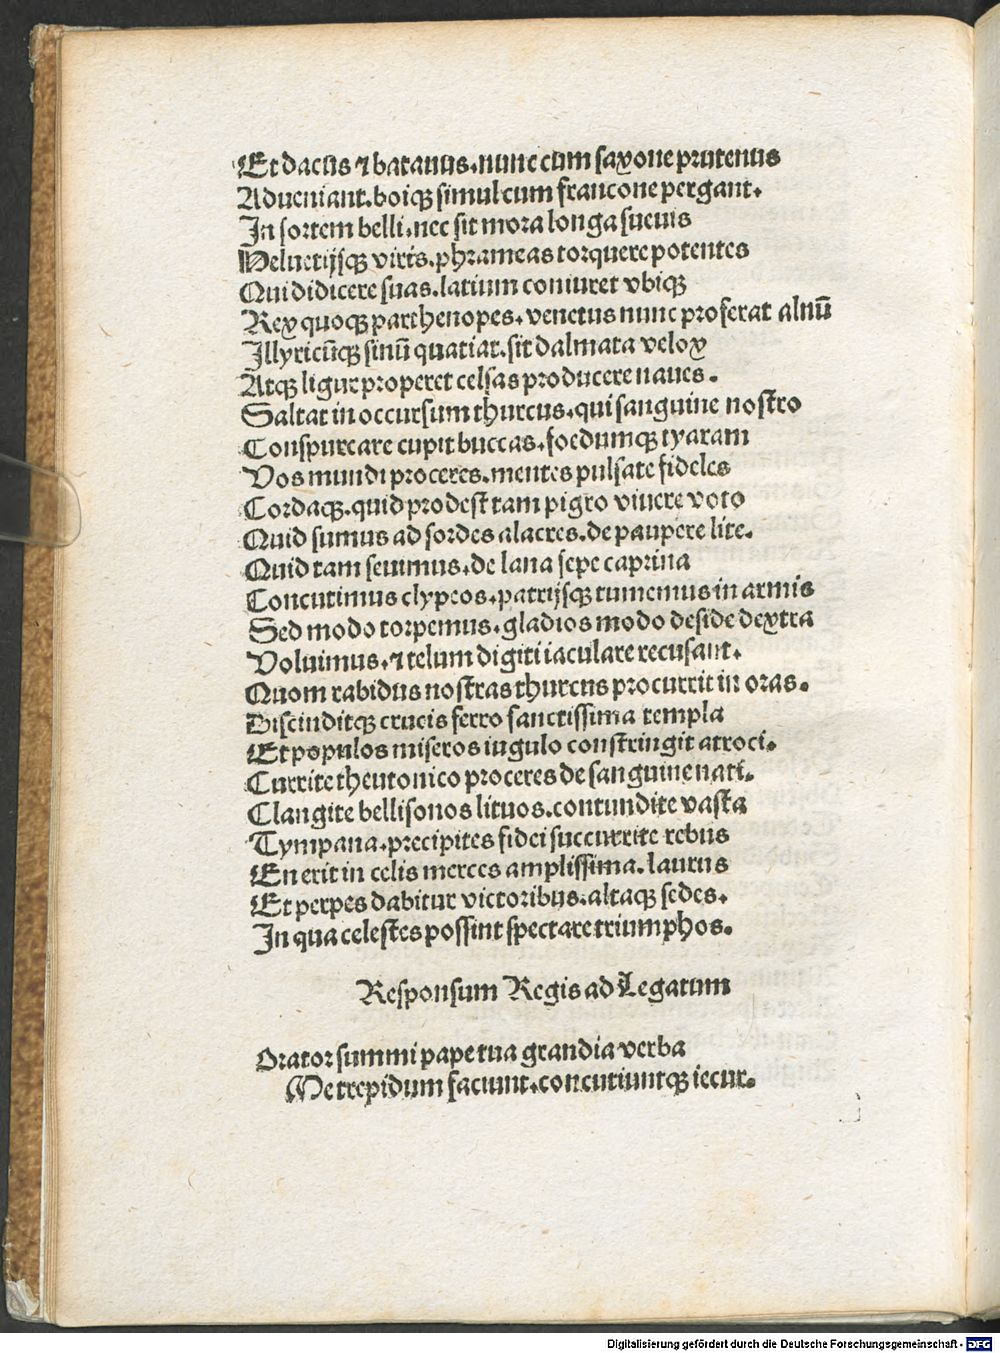 Et dacus ⁊ batauus. nunc cum saxone prutenus
Adueniant. boiqꝫ simul cum francone pergant.
In sortem belli. nec sit mora longa sueuis
Heluetijsqꝫ viris. phrameas torquere potentes
Qui didicere suas. latium coniuret vbiqꝫ
Rex quoqꝫ parthenopes. venetus nunc proferat alnū
Illyricūqꝫ sinū quatiat. sit dalmata velox
Atqꝫ ligur properet celsas producere naues.
Saltat in occursum thurcus. qui sanguine nostro
Conspurcare cupit buccas. foedumqꝫ tyaram
Vos mundi proceres. mentes pulsate fideles
Cordaqꝫ. quid prodest tam pigro viuere voto
Quid sumus ad sordes alacres. de paupere lite.
Quid tam seuimus. de lana sepe caprina
Concutimus clypeos. patrijsqꝫ tumemus in armis
Sed modo torpemus. gladios modo deside dextra
Voluimus. ⁊ telum digiti iaculare recusant.
Quom rabidus nostras thurcus procurrit in oras.
Disciuditqꝫ crucis ferro sanctissima templa
Et populos miseros iugulo constringit atroci.
Currite theutonico proceres de sanguine nati.
Clangite bellisonos lituos. contundite vasta
Tympana. precipites fidei succurrite rebus
En erit in celis merces amplissima. laurus
Et perpes dabitur victoribus. altaqꝫ sedes.
In qua celestes possint spectare triumphos.
Responsum Regis ad Legatum
Orator summi pape tua grandia verba
Me trepidum faciunt. concutiuntqꝫ iecur.
Digitalisierung gefördert durch die Deutsche Forschungsgemeinschaft - DFG